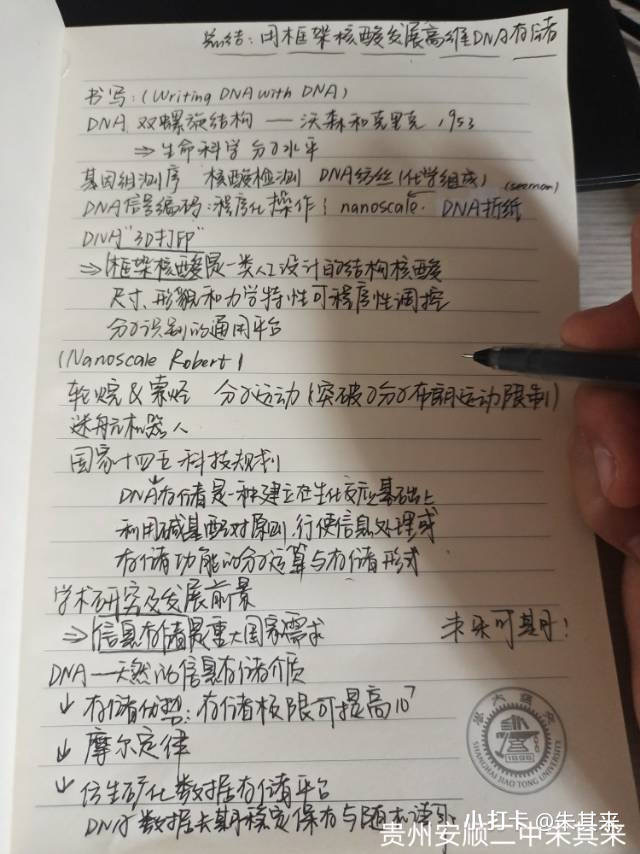 总结：用框架核酸发展高维DNA存储
书写：(Writing DNA with DNA)
DNA 双螺旋结构 — 沃森和克里克，1953
⇒ 生命科学 分子水平
基因组测序 核酸检测 DNA纺丝(化学组成) (seeman)
DNA信号编码：程序化操作； nanoscale. DNA折纸
DNA"3D打印"
⇒框架核酸是一类人工设计的结构核酸
尺寸、形貌和力学特性可程序性调控
分子识别的通用平台
(Nanoscale Robert)
轮烷&索烃 分子运动(突破分子布朗运动限制)
迷航机器人
国家十四五科技规划
DNA存储是一种建立在生化反应基础上
利用碱基配对原则，行使信息处理或
存储功能的分子运算与存储形式
学术研究及发展前景
⇒信息存储是重大国家需求 未来可期！
DNA—天然的信息存储介质
↓存储优势：存储极限可提高10⁷
↓摩尔定律
↓仿生矿化数据存储平台
DNA数据长期稳定保存与随机读取
上海交通大学
1896
SHANGHAI JIAO TONG UNIVERSITY
小打卡@朱其来
贵州安顺二中朱其来